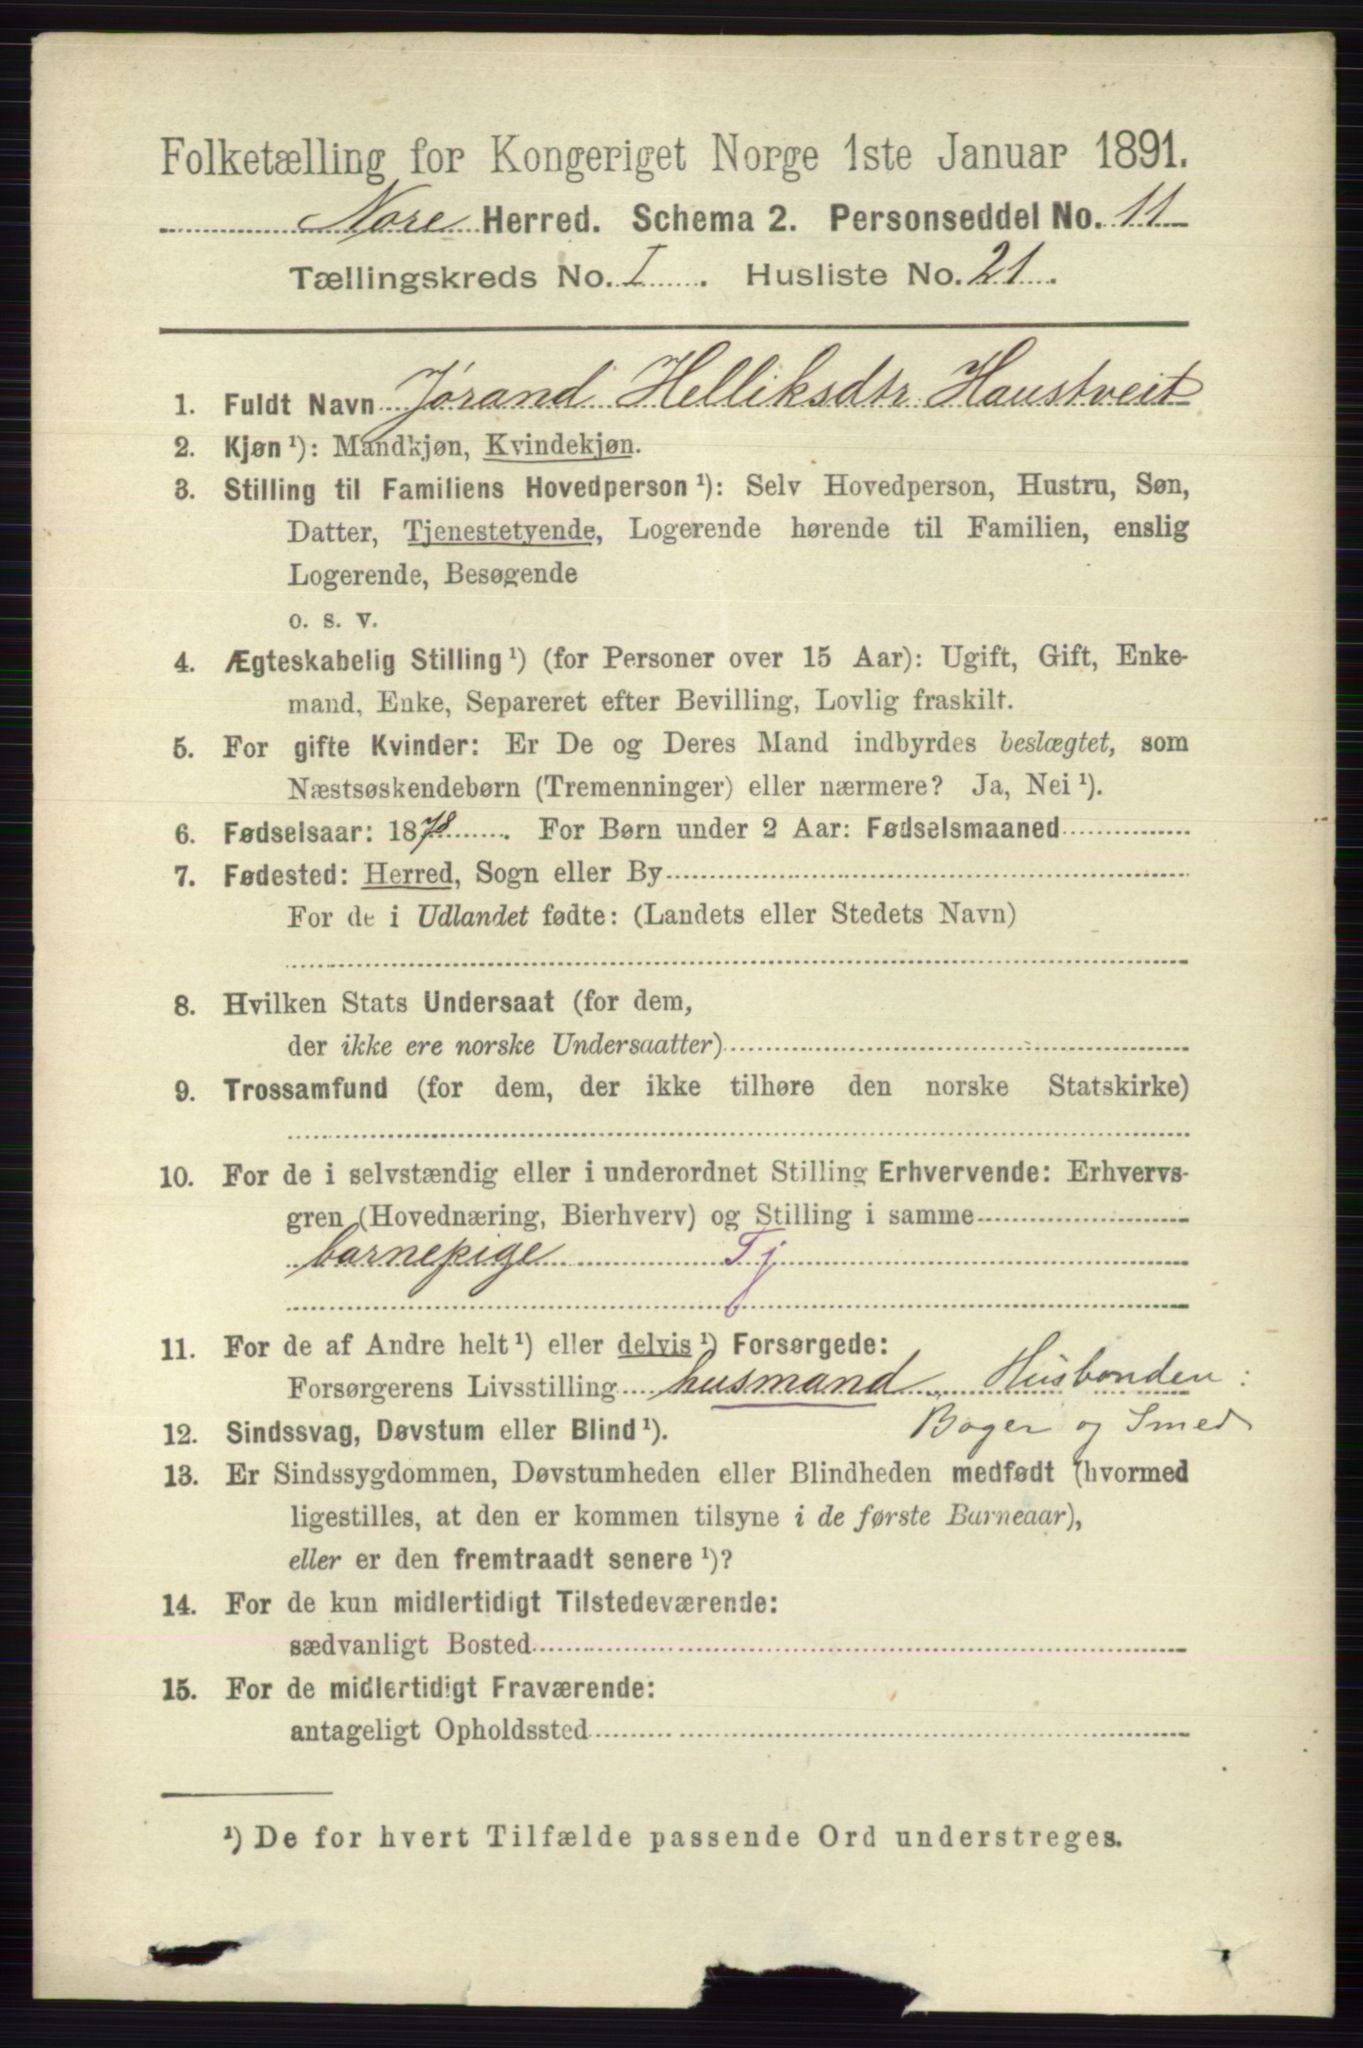 Folketælling for Kongeriget Norge 1ste Januar 1891.
Nore Herred. Schema 2. Personseddel No. 11
Tællingskreds No. I. Husliste No. 21.
1. Fuldt Navn Jørand Helliksdtr Haustveit
2. Kjøn¹): Mandkjøn, Kvindekjøn.
3. Stilling til Familiens Hovedperson¹): Selv Hovedperson, Hustru, Søn,
Datter, Tjenestetyende, Logerende hørende til Familien, enslig
Logerende, Besøgende
o. s. v.
4. Ægteskabelig Stilling¹) (for Personer over 15 Aar): Ugift, Gift, Enke-
mand, Enke, Separeret efter Bevilling, Lovlig fraskilt.
5. For gifte Kvinder: Er De og Deres Mand indbyrdes beslægtet, som
Næstsøskendebørn (Tremenninger) eller nærmere? Ja, Nei¹).
6. Fødselsaar: 1878. For Børn under 2 Aar: Fødselsmaaned
7. Fødested: Herred, Sogn eller By
For de i Udlandet fødte: (Landets eller Stedets Navn)
8. Hvilken Stats Undersaat (for dem,
der ikke ere norske Undersaatter)
9. Trossamfund (for dem, der ikke tilhøre den norske Statskirke)
10. For de i selvstændig eller i underordnet Stilling Erhvervende: Erhvervs-
gren (Hovednæring, Bierhverv) og Stilling i samme
barnepige Tj
11. For de af Andre helt¹) eller delvis¹) Forsørgede:
Forsørgerens Livsstilling husmand, Husbonden:
Bøger og Smed
12. Sindssvag, Døvstum eller Blind¹).
13. Er Sindssygdommen, Døvstumheden eller Blindheden medfødt (hvormed
ligestilles, at den er kommen tilsyne i de første Barneaar),
eller er den fremtraadt senere¹)?
14. For de kun midlertidigt Tilstedeværende:
sædvanligt Bosted
15. For de midlertidigt Fraværende:
antageligt Opholdssted
¹) De for hvert Tilfælde passende Ord understreges.